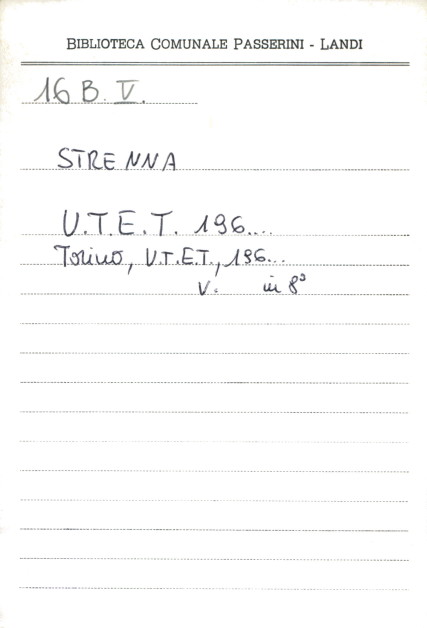 BIBLIOTECA COMUNALE PASSERINI - LANDI
16 B. V.
STRENNA
U.T.E.T. 196...
Torino, U.T.E.T., 196...
V. in 8°